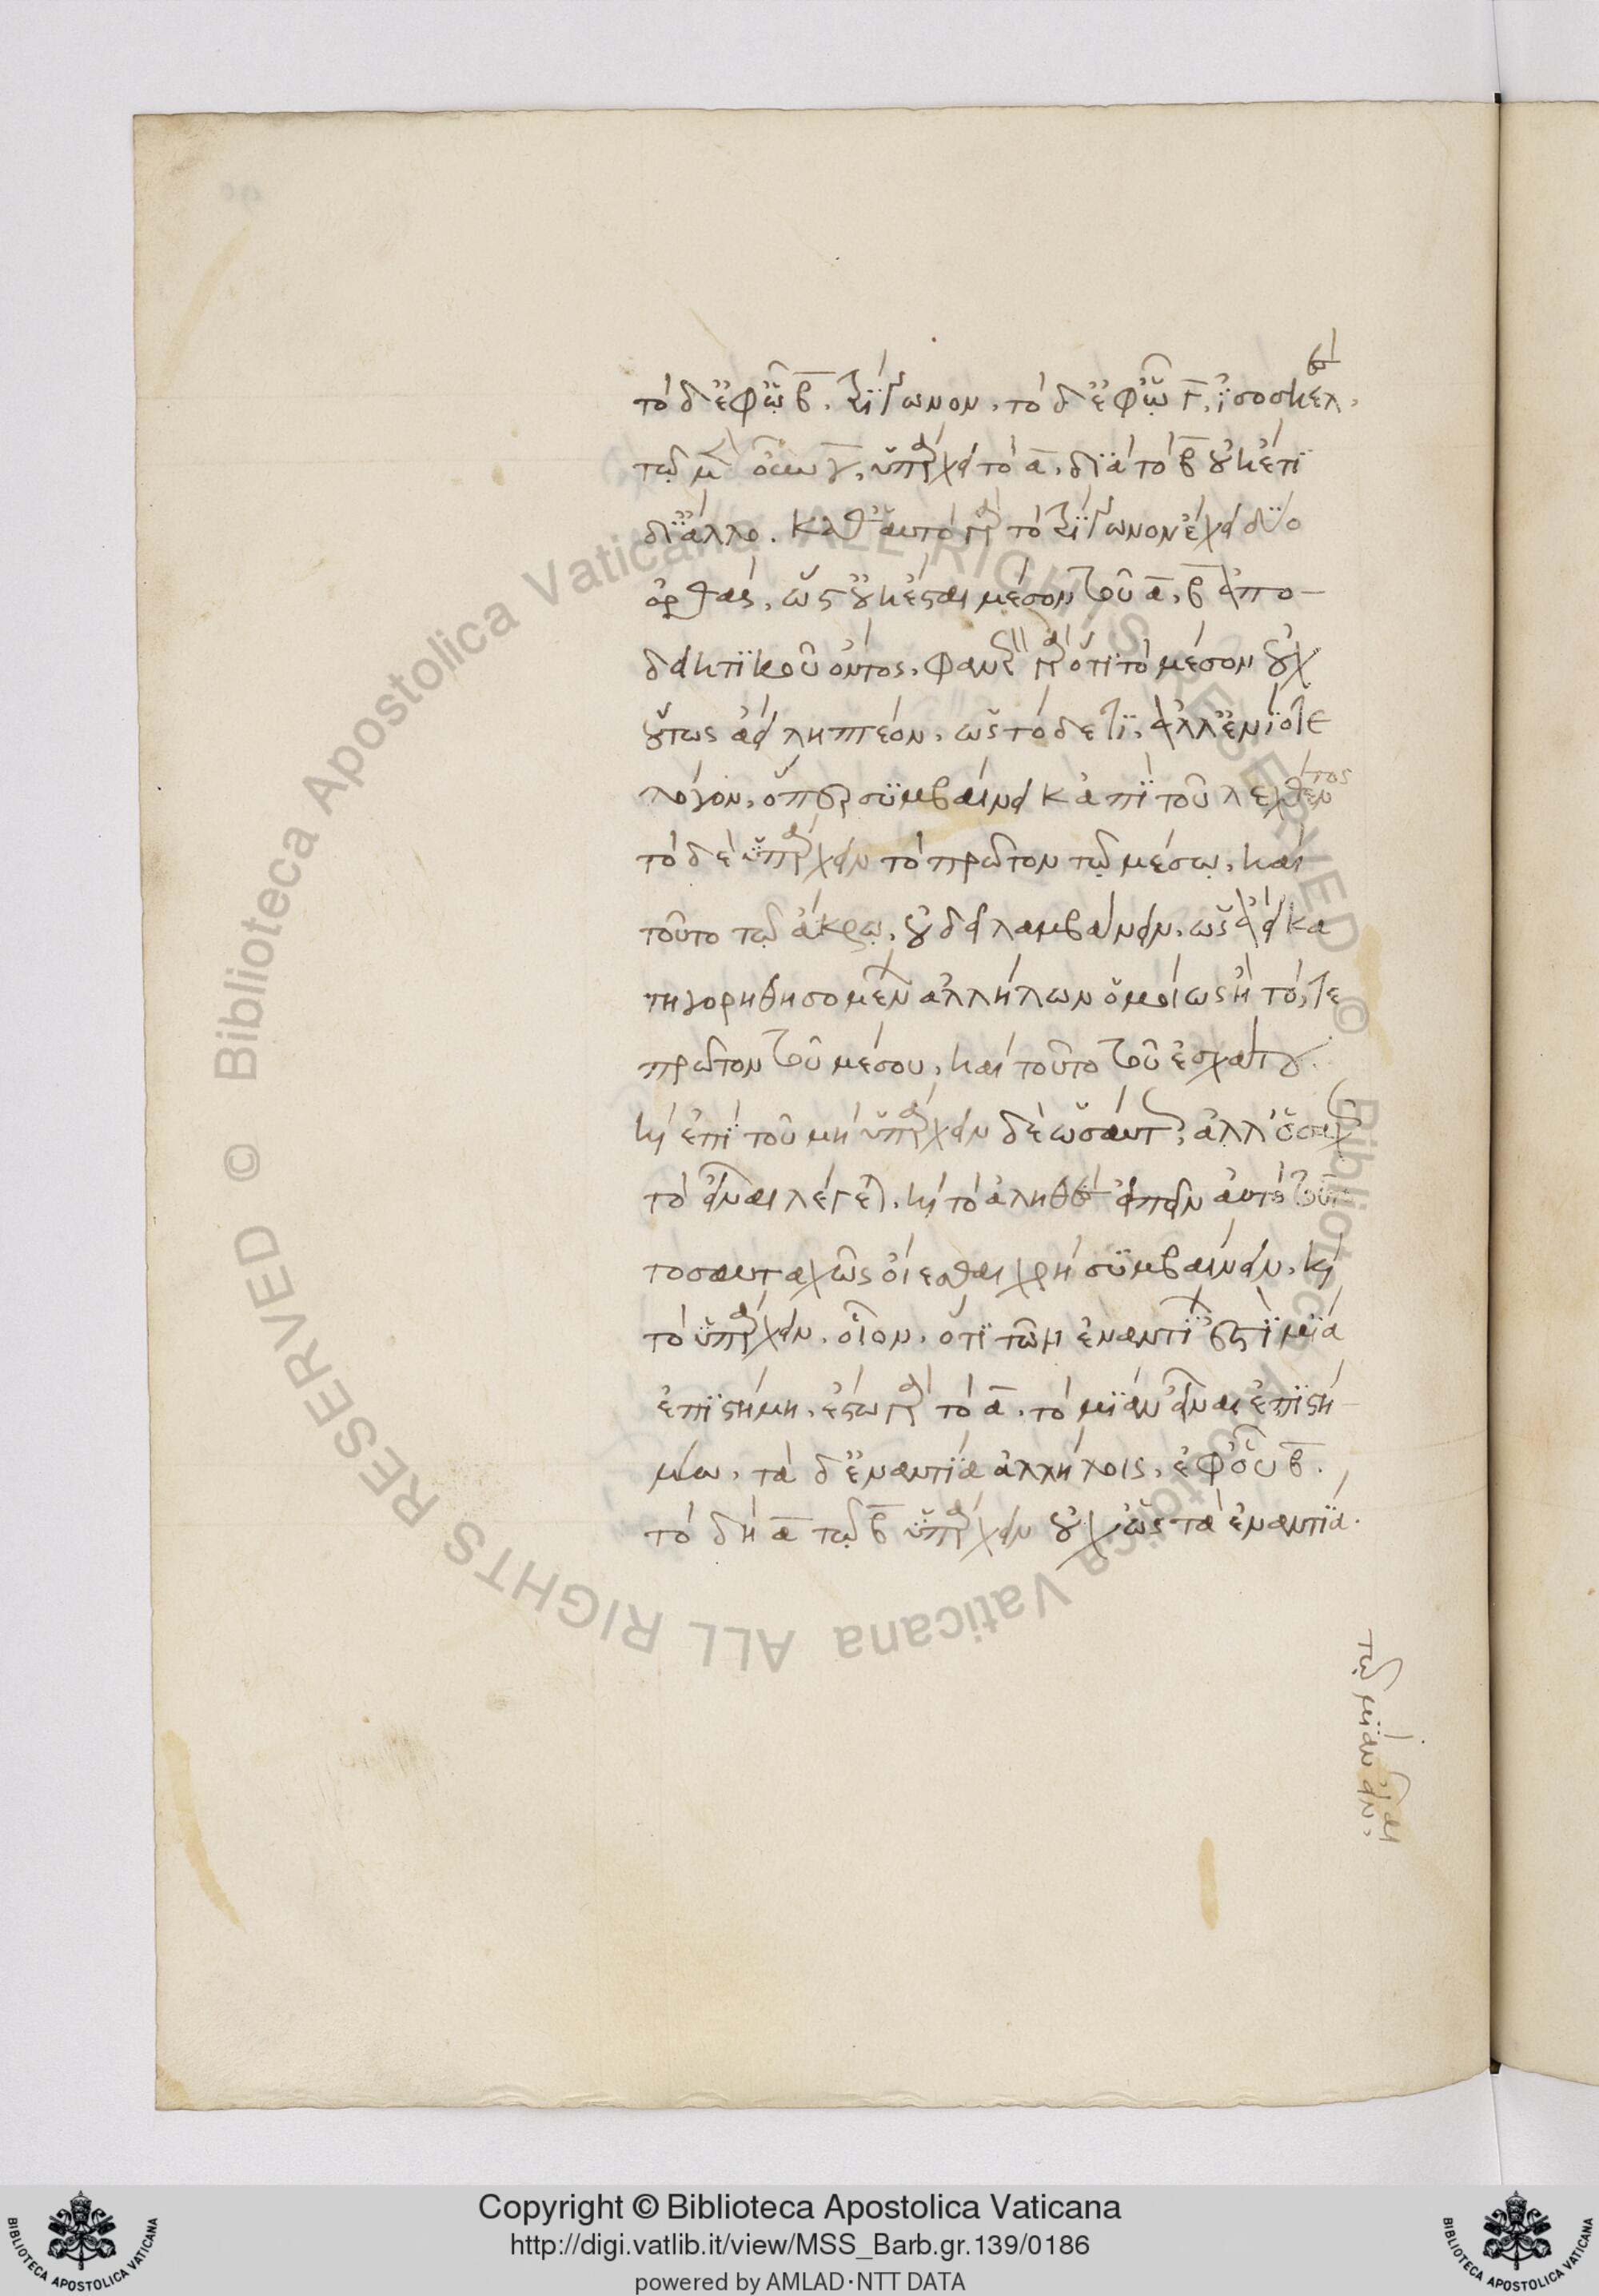 τὸ δ' ἐφ' ᾧ β, τρίγωνον, τὸ δ' ἐφ' ᾧ γ, ἰσοσκελές,
τῷ μὲν οὖν γ, ὑπάρχει τὸ α, διὰ τὸ β οὐκέτι
δι' ἄλλο. καθ' αὑτὸ γὰρ τὸ τρίγωνον ἔχει δύο
ὀρθάς, ὥστ' οὐκ ἔσται μέσον τοῦ α, β ἀπο-
δεικτικοῦ ὄντος, φανερὸν γὰρ ὅτι τὸ μέσον οὐχ
οὕτως ἀεὶ ληπτέον, ὡς τόδε τι, ἀλλ' ἐνίοτε
λόγον, ὅπερ συμβαίνει κἀπὶ τοῦ λεχθέντος
τὸ δὲ ὑπάρχειν τὸ πρῶτον τῷ μέσῳ, καὶ
τοῦτο τῷ ἄκρῳ, οὐ δεῖ λαμβάνειν, ὡς ἀεὶ κα
τηγορηθησομένων ἀλλήλων ὁμοίως ἢ τό, τε
πρῶτον τοῦ μέσου, καὶ τοῦτο τοῦ ἐσχάτου.
καὶ ἐπὶ τοῦ μὴ ὑπάρχειν δὲ ὡσαύτως, ἀλλ' ὁσαχῶς
τὸ εἶναι λέγεται, καὶ τὸ ἀληθὲς εἰπεῖν αὐτὸ τοῦτο
τοσαυταχῶς οἴεσθαι χρὴ συμβαίνειν, καὶ
τὸ ὑπάρχειν. οἷον, ὅτι τῶν ἐναντίων ἐστὶ μία
ἐπιστήμη, ἔστω γὰρ τὸ α, τὸ μίαν εἶναι ἐπιστή-
μην, τὰ δ' ἐναντία ἀλλήλοις, ἐφ' οὗ β.
τὸ δὴ α τῷ β ὑπάρχειν οὐχ ὡς τὰ ἐναντία.
τῷ μίαν εἶναι
Copyright © Biblioteca Apostolica Vaticana
http://digi.vatlib.it/view/MSS_Barb.gr.139/0186
powered by AMLAD·NTT DATA
BIBLIOTECA APOSTOLICA VATICANA
BIBLIOTECA APOSTOLICA VATICANA
© Biblioteca Apostolica Vaticana ALL RIGHTS RESERVED
© Biblioteca Apostolica Vaticana ALL RIGHTS RESERVED